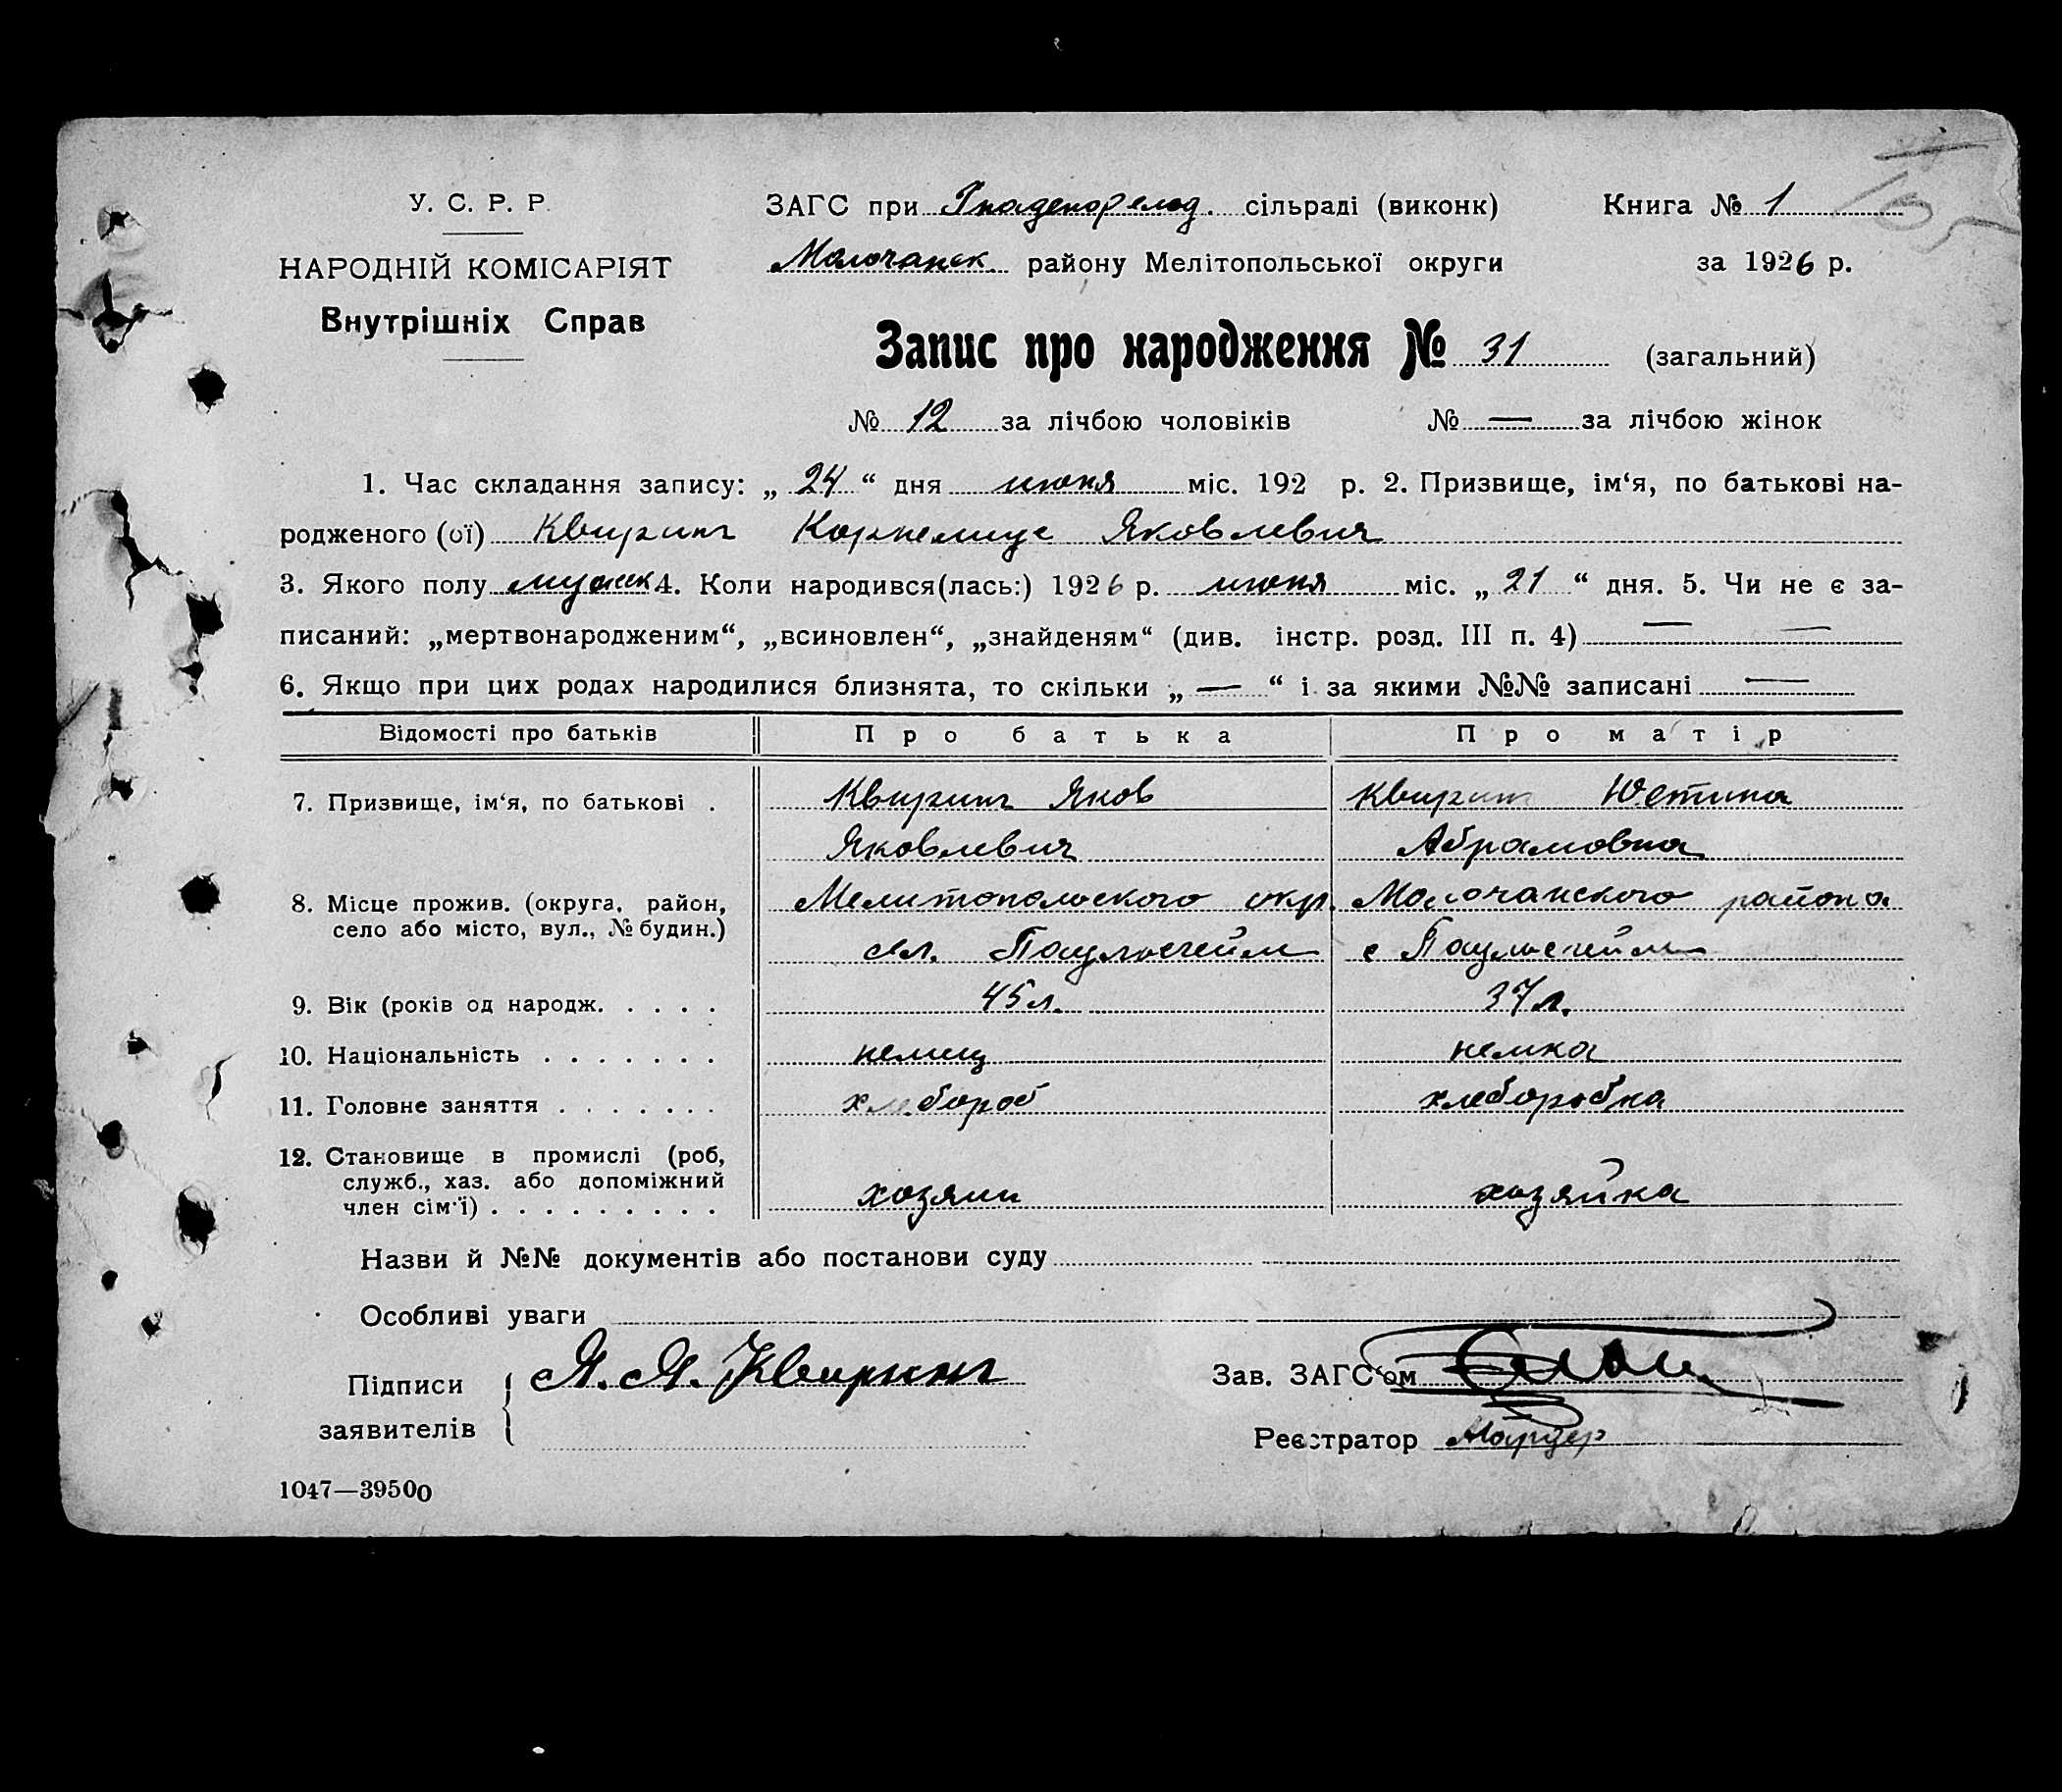 У. С. Р. Р.
НАРОДНІЙ КОМІСАРІЯТ
Внутрішніх Справ
ЗАГС при Гнаденфельд. сільраді (виконк) Книга № 1
Молочанск. району Мелітопольської округи за 1926 р.
Запис про народження № 31 (загальний)
№ 12 за лічбою чоловіків № — за лічбою жінок
1. Час складання запису: „24“ дня июня міс. 192 р. 2. Призвище, ім‘я, по батькові на-
родженого (ої) Квиринг Корнелиус Яковлевич
3. Якого полу мужск 4. Коли народився(лась:) 1926 р. июня міс. „21“ дня. 5. Чи не є за-
писаний: „мертвонародженим“, „всиновлен“, „знайденям“ (див. інстр. розд. III п. 4) — —
6. Якщо при цих родах народилися близнята, то скільки „—“ і за якими №№ записані —
Відомості про батьків Про батька Про матір
7. Призвище, ім‘я, по батькові . Квиринг Яков Квиринг Юстина
Яковлевич Абрамовна
8. Місце прожив. (округа, район, Мелитопольского окр. Молочанского района
село або місто, вул., № будин.) Паульсгейм с Паульсгейм
9. Вік (років од народж. . . . . 45 л. 37 л.
10. Національність . . . . . . . немец немка
11. Головне заняття . . . . . . . хлебороб хлеборобка
12. Становище в промислі (роб,
служб., хаз. або допоміжний
член сім‘ї) . . . . . . . . . хозяин хозяйка
Назви й №№ документів або постанови суду
Особливі уваги
Підписи Я. Я. Квиринг Зав. ЗАГС‘ом
заявителів Реєстратор
1047—39500